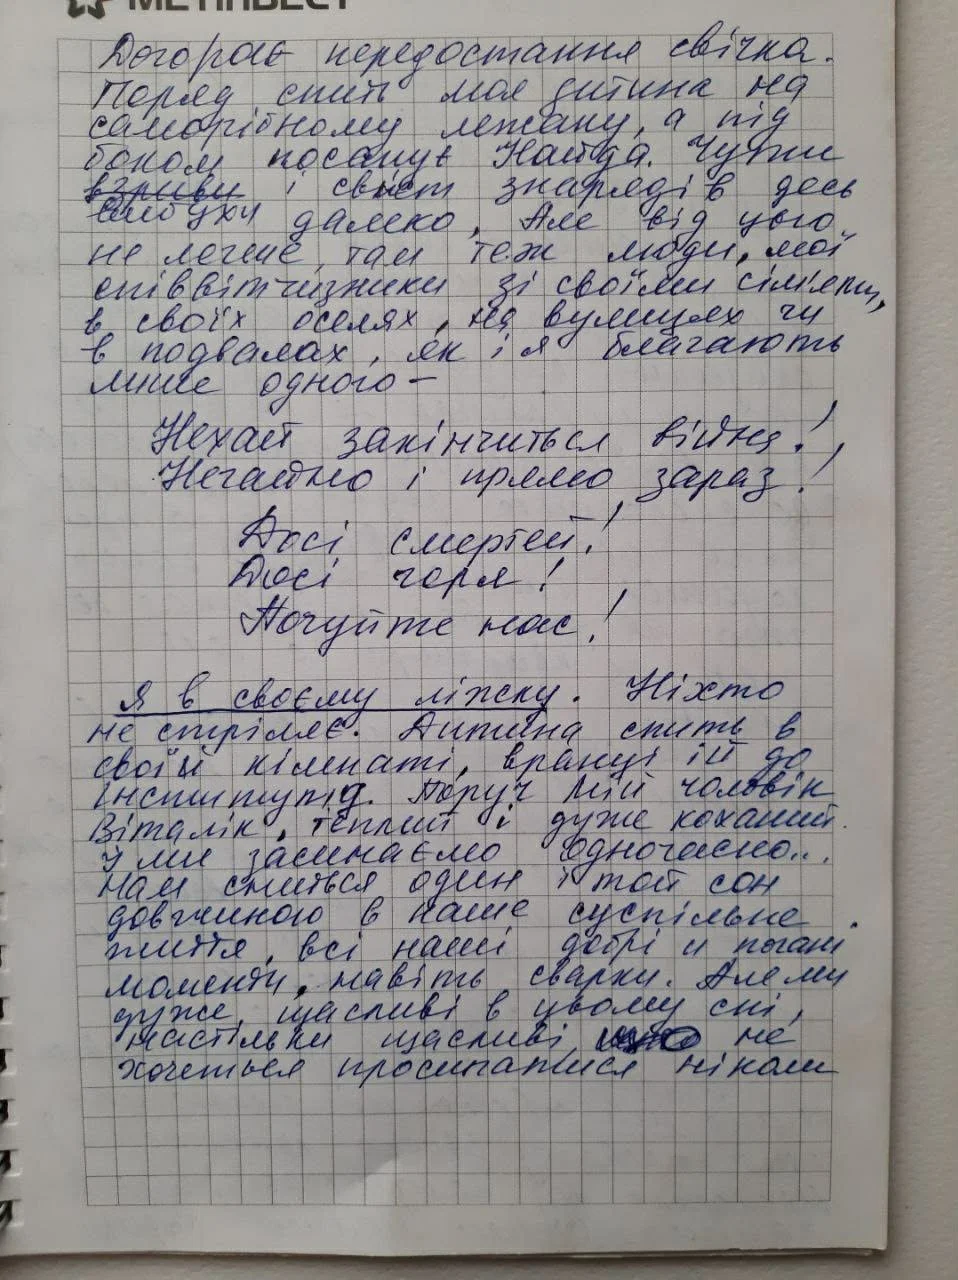 МЕТІНВЕСТ
Догорає передостання свічка.
Поряд спить моя дитина на
саморобному лежаку, а під
боком посапує Найда. Чутно
взриви і свист знарядів десь
вибухи далеко. Але від цього
не легше, там теж люди, мої
співвітчизники зі своїми сім'ями,
в своїх оселях, на вулицях чи
в подвалах, як і я благають
лише одного –
Нехай закінчиться війна!
Негайно і прямо зараз!
Досі смертей!
Досі горя!
Почуйте нас!
Я в своєму ліжку. Ніхто
не стріляє. Дитина спить в
своїй кімнаті, вранці їй до
інституту. Поруч мій чоловік
Віталік, теплий і дуже коханий.
І ми засинаємо одночасно...
Нам сниться один і той сон
довжиною в наше суспільне
життя, всі наші добрі и погані
моменти, навіть сварки. Але ми
дуже щасливі в цьому сні,
настільки щасливі, що не
хочеться просипатися ніколи